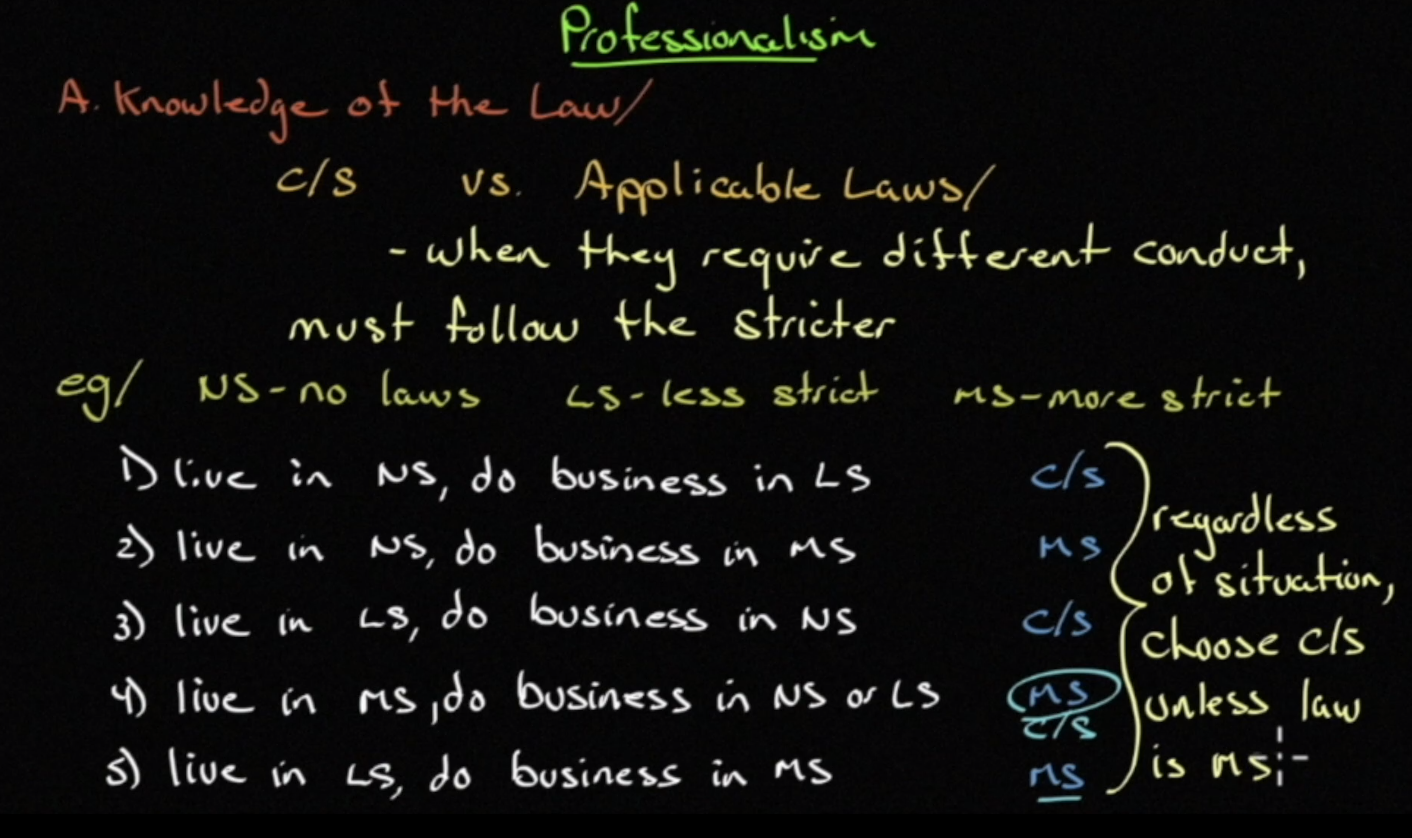 Professionalism
A. Knowledge of the Law/
c/s vs. Applicable Laws/
- when they require different conduct,
must follow the stricter
eg/ NS-no laws LS-less strict MS-more strict
1) live in NS, do business in LS c/s
2) live in NS, do business in MS MS
3) live in LS, do business in NS c/s
4) live in MS, do business in NS or LS MS
c/s
5) live in LS, do business in MS MS
regardless
of situation,
choose c/s
unless law
is MS